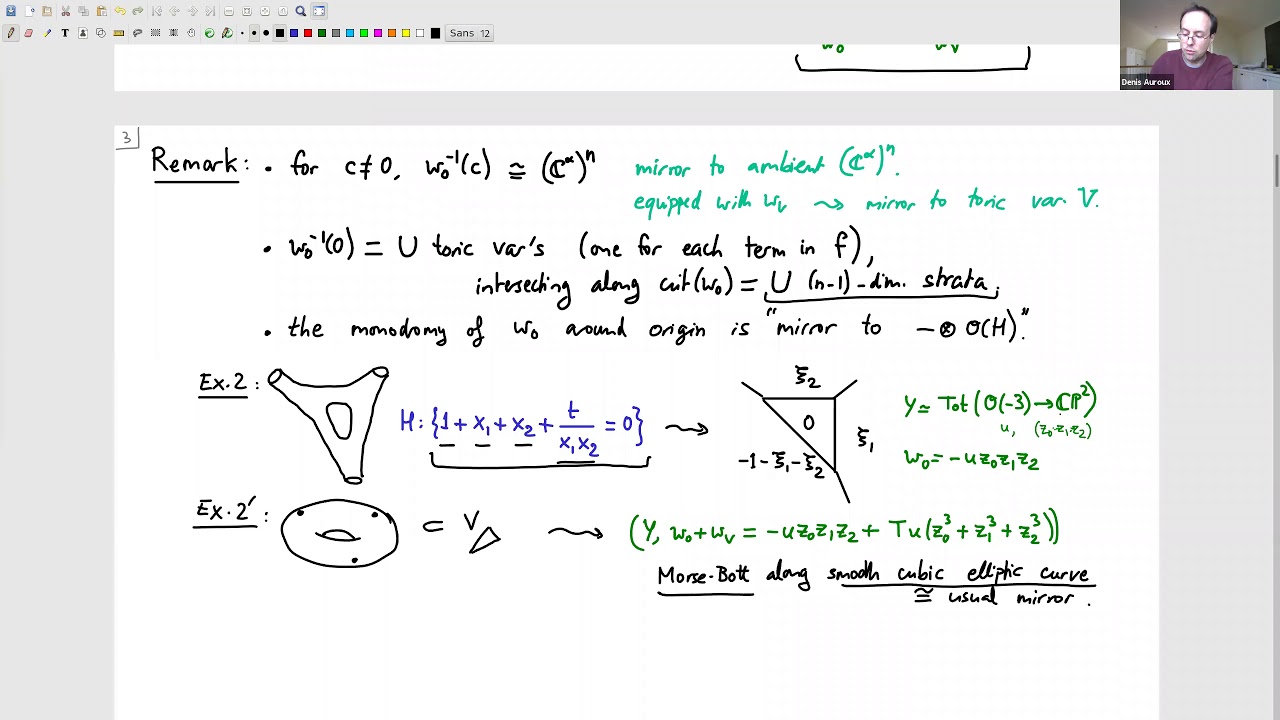 Sans 12
Denis Auroux
w₀ w_V
3
Remark: • for c≠0, w₀⁻¹(c) ≅ (ℂ*)ⁿ mirror to ambient (ℂ*)ⁿ.
equipped with w_V ⇝ mirror to toric var. V.
• w₀⁻¹(0) = ∪ toric var's (one for each term in f),
intersecting along crit(w₀) = ∪ (n-1)-dim. strata.
• the monodromy of w₀ around origin is "mirror to -⊗ O(H)".
Ex. 2: H: {1 + x₁ + x₂ + t/(x₁x₂) = 0} ⇝ ξ₂ 0 ξ₁ -1-ξ₁-ξ₂
Y ≃ Tot(O(-3) → ℂP²)
u, (z₀:z₁:z₂)
w₀ = -uz₀z₁z₂
Ex. 2': ⊂ V ⇝ (Y, w₀+w_V = -uz₀z₁z₂ + Tu(z₀³+z₁³+z₂³))
Morse-Bott along smooth cubic elliptic curve
≅ usual mirror.